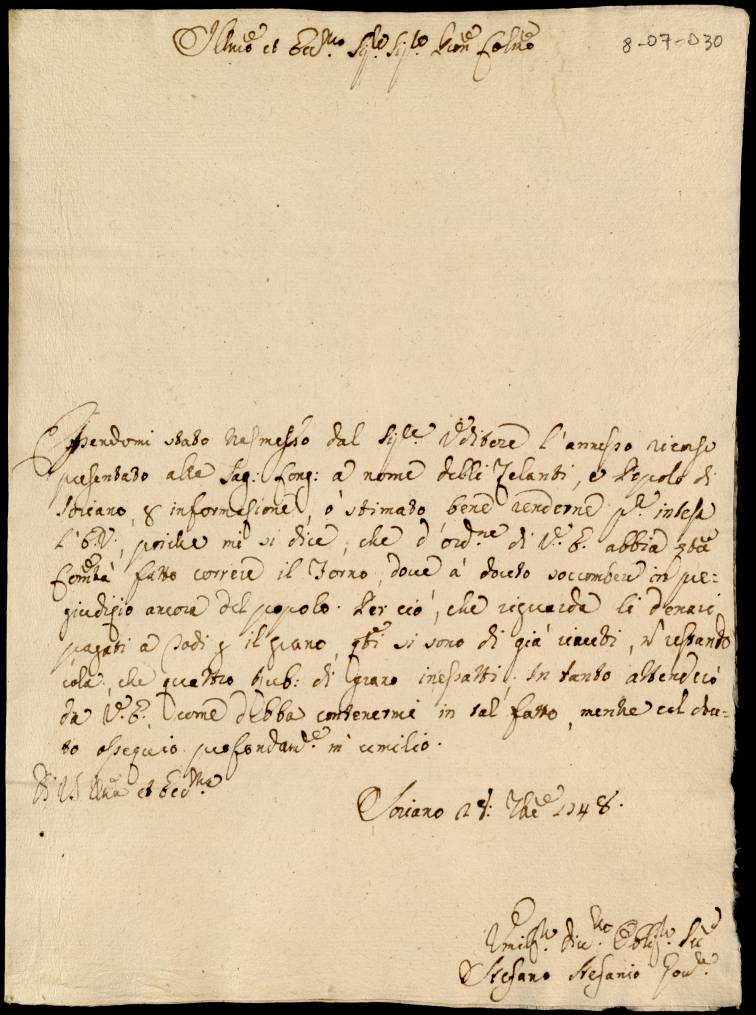 Illmo et Eccmo Sigre Sigre Pron Colmo
8-07-030
Essendomi stato trasmesso dal Sigre Uditore l'annesso ricorso
presentato alla Sag: Cong: a nome delli Zelanti, e Popolo di
Soriano, informazione, ò stimato bene renderne pa intesa
l'E.V., poiche mi si dice, che d'ordne di V.E. abbia qta
Comtà fatto correre il Forno, dove à dovuto soccombere in pre:
giudizio ancora del popolo. Per ciò, che riguarda li denari
pagati a Sodi p il grano, qti si sono di già riavuti, restando
sola, che quattro rub: di grano inesatti. In tanto attenderò
da V.E. come debba contenermi in tal fatto, mentre col dovu-
to ossequio profondamte m'umilio.
Di V.E. Illma et Eccma
Soriano 1748.
Umilmo Divmo Obblmo Sre
Stefano Stefanio Govre